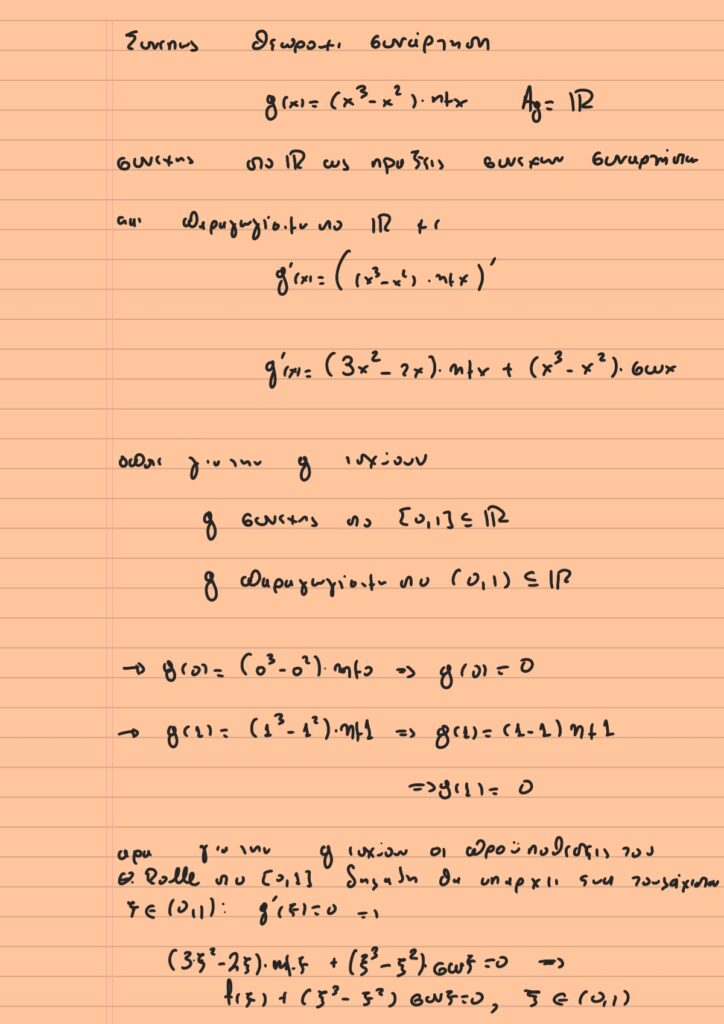 Συνεπως θεωρουμε συνάρτηση
g(x) = (x³-x²)·ημx Ag = ℝ
συνεχης στο ℝ ως πραξεις συνεχων συναρτησεων
και παραγωγίσιμη στο ℝ με
g'(x) = ((x³-x²)·ημx)'
g'(x) = (3x²-2x)·ημx + (x³-x²)·συνx
για την g ισχύουν
g συνεχης στο [0,1] ⊆ ℝ
g παραγωγίσιμη στο (0,1) ⊆ ℝ
→ g(0) = (0³-0²)·ημ0 => g(0) = 0
→ g(1) = (1³-1²)·ημ1 => g(1) = (1-1)ημ1
=> g(1) = 0
αρα για την g ισχύουν οι προϋποθεσεις του
Θ. Rolle στο [0,1] δηλαδη θα υπαρχει ενα τουλαχιστον
ξ ∈ (0,1): g'(ξ) = 0 =>
(3ξ²-2ξ)·ημξ + (ξ³-ξ²)συνξ = 0 =>
f(ξ) + (ξ³-ξ²)συνξ = 0, ξ ∈ (0,1)